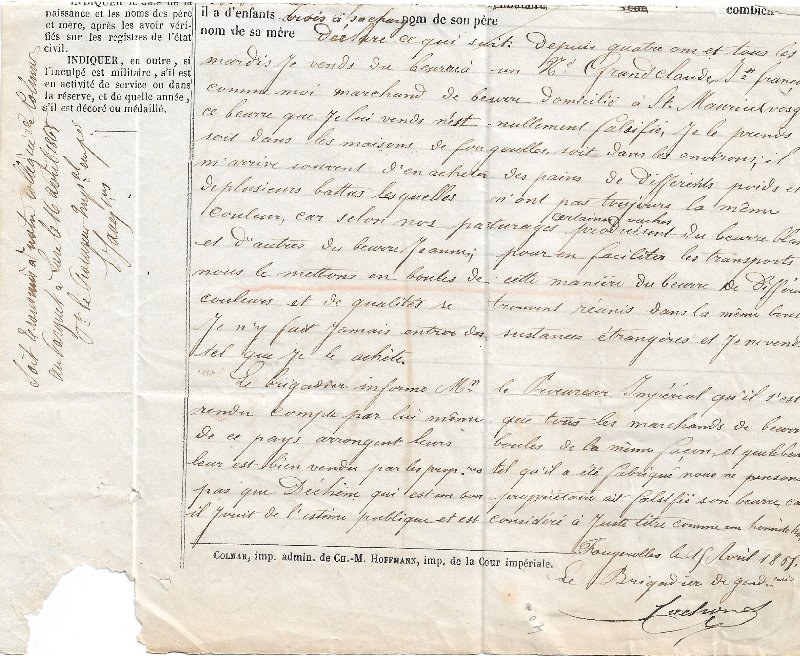 INDIQUER la date de la
naissance et les noms des père
et mère, après les avoir véri-
fiés sur les registres de l'état
civil.
INDIQUER, en outre, si
l'inculpé est militaire, s'il est
en activité de service ou dans
la réserve, et de quelle année,
s'il est décoré ou médaillé.
Soit renvoyé à notre collègue de Colmar
au parquet à Lure le 16 avril 186
Le Procureur Impal
il a d'enfants trois à sa charge nom de son père combien
nom de sa mère Déclare ce qui suit: Depuis quatre ans et tous les
mardis Je vends du beurre à un Nd Grandclaude Jn françois
comme moi marchand de beurre domicilié à St. Maurice vosg
ce beurre que Je lui vends n'est nullement falsifié, Je le prends
soit dans les maisons de fougerolles, soit dans les environs; il
m'arrive souvent d'en acheter des pains de différents poids et
de plusieurs battus lesquelles n'ont pas toujours la même
couleur, car selon nos pâturages certaines vaches produisent du beurre blanc
et d'autres du beurre Jeaune; pour en faciliter les transports
nous le mettons en boules de cette manière du beurre de differ
couleurs et de qualités se trouvent réunis dans la même boule
Je n'y fait Jamais entrer des sustances étrangères et Je ne vends
tel que Je le achète.
Le brigadier informe Mr. le Procureur Impérial qu'il s'est
rendu compte par lui même que tous les marchands de beurre
de ce pays arrongent leurs boules de la même façon, et que le beu
leur est bien vendu par les prop.res tel qu'il a été fabriqué nous ne pensons
pas que Dichème qui est un bon propriétaire ait falsifié son beurre, car
il Jouit de l'estime publique et est considéré à Juste titre comme un honnête
Fougerolles le 15 Avril 186
Le Brigadier de gend.
COLMAR, imp. admin. de CH.-M. HOFFMANN, imp. de la Cour impériale.